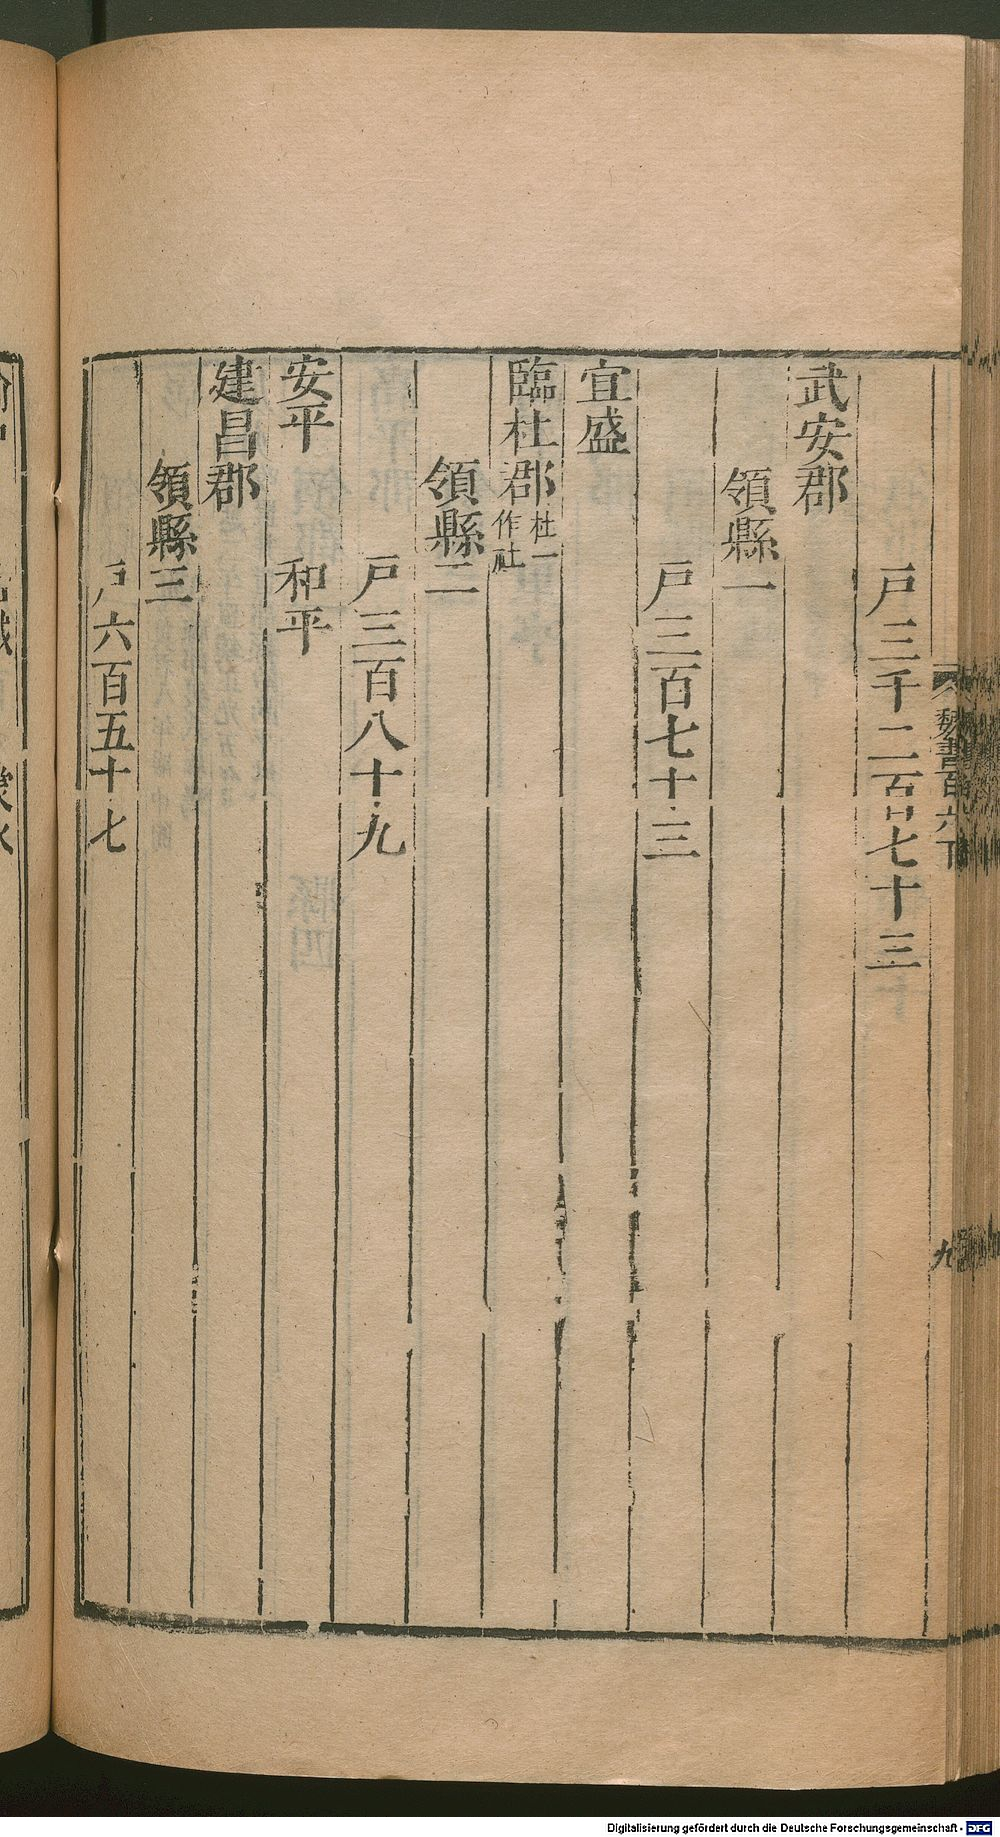 戸三千二百七十三
武安郡
領縣一
戸三百七十三
宜盛
臨杜郡杜一作社
領縣二
戸三百八十九
安平 和平
建昌郡
領縣三
戸六百五十七
魏書百六下
九
Digitalisierung gefördert durch die Deutsche Forschungsgemeinschaft - DFG